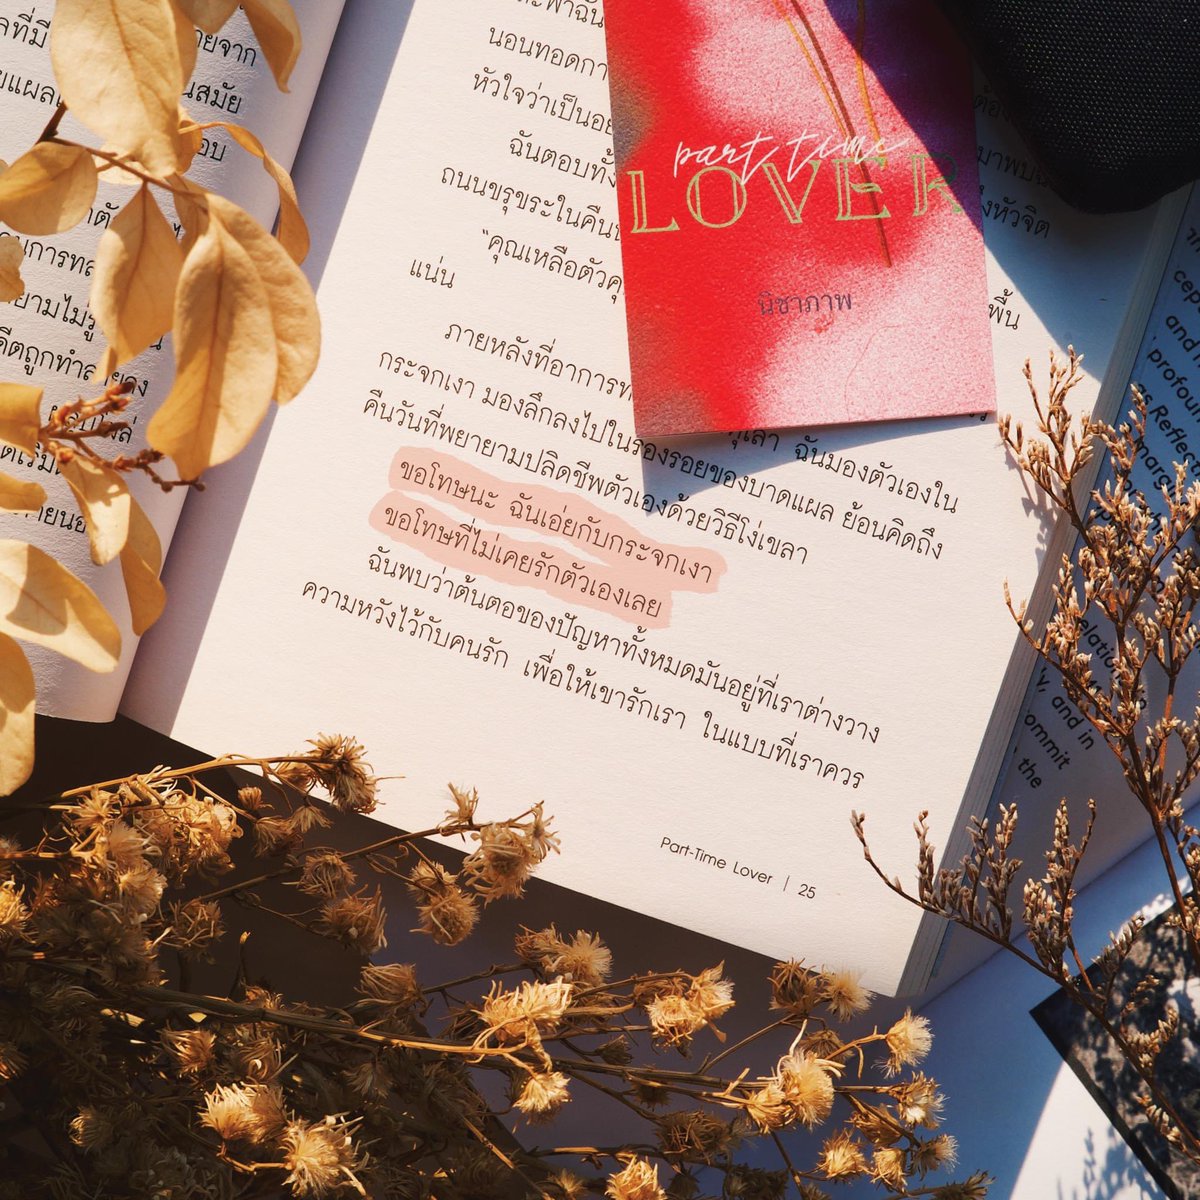 ยจาก
นสมัย
อบ
นอนทอดกา
หัวใจว่าเป็นอย
ฉันตอบทั้
ถนนขรุขระในคืน
“คุณเหลือตัวคุ
พื้น
แน่น
ภายหลังที่อาการท
กระจกเงา มองลึกลงไปในร่องรอยของบาดแผล ย้อนคิดถึง
ฉันมองตัวเองใน
คืนวันที่พยายามปลิดชีพตัวเองด้วยวิธีโง่เขลา
ขอโทษนะ ฉันเอ่ยกับกระจกเงา
ขอโทษที่ไม่เคยรักตัวเองเลย
ฉันพบว่าต้นตอของปัญหาทั้งหมดมันอยู่ที่เราต่างวาง
ความหวังไว้กับคนรัก เพื่อให้เขารักเรา ในแบบที่เราควร
Part-Time Lover | 25
part time
LOVER
นิชาภาพ
and
profoun
as Reflec
margi
elation
y, and in
ommit
the